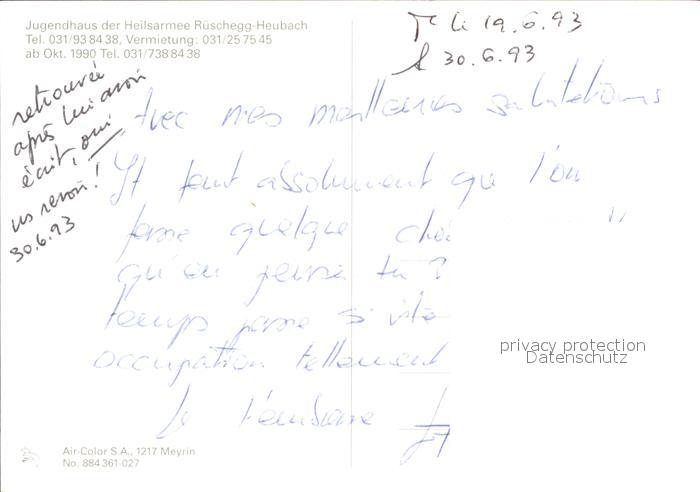 Jugendhaus der Heilsarmee Rüschegg-Heubach
Tel. 031/93 84 38, Vermietung: 031/25 75 45
ab Okt. 1990 Tel. 031/738 84 38
le 19.6.93
30.6.93
retrouvée
après lui avoir
écrit, oui
us revoir!
30.6.93
Avec mes meilleures salutations
Il faut absolument que l'on
fasse quelque cho
qu'en penses tu?
temps passe si vite
occupation tellement
Je t'embrasse
privacy protection
Datenschutz
Air-Color S.A., 1217 Meyrin
No. 884 361-027